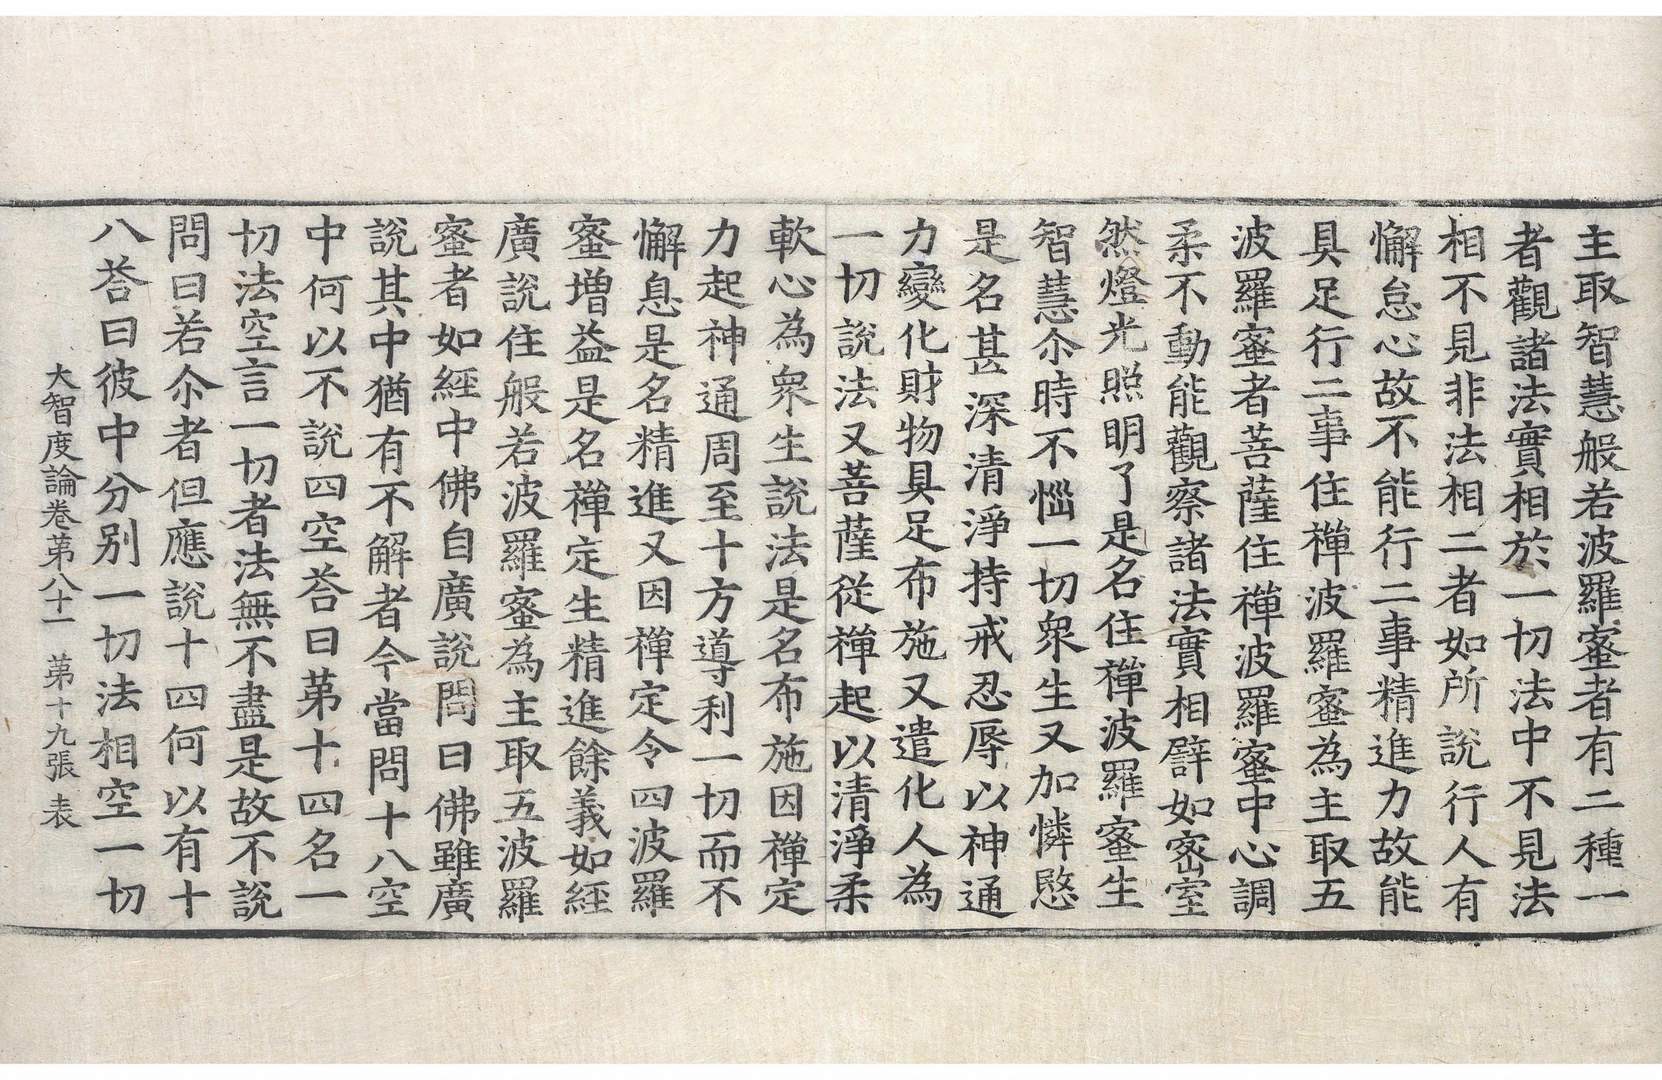 主取智慧般若波羅蜜者有二種一
者觀諸法實相於一切法中不見法
相不見非法相二者如所說行人有
懈怠心故不能行二事精進力故能
具足行二事住禪波羅蜜為主取五
波羅蜜者菩薩住禪波羅蜜中心調
柔不動能觀察諸法實相譬如密室
然燈光照明了是名住禪波羅蜜生
智慧尒時不惱一切衆生又加憐愍
是名甚深清淨持戒忍辱以神通
力變化財物具足布施又遣化人為
一切說法又菩薩從禪起以清淨柔
軟心為衆生說法是名布施因禪定
力起神通周至十方導利一切而不
懈息是名精進又因禪定令四波羅
蜜增益是名禪定生精進餘義如經
廣說住般若波羅蜜為主取五波羅
蜜者如經中佛自廣說問曰佛雖廣
說其中猶有不解者今當問十八空
中何以不說四空荅曰第十四名一
切法空言一切者法無不盡是故不說
問曰若尒者但應說十四何以有十
八荅曰彼中分別一切法相空一切
大智度論卷第八十一 第十九張 表